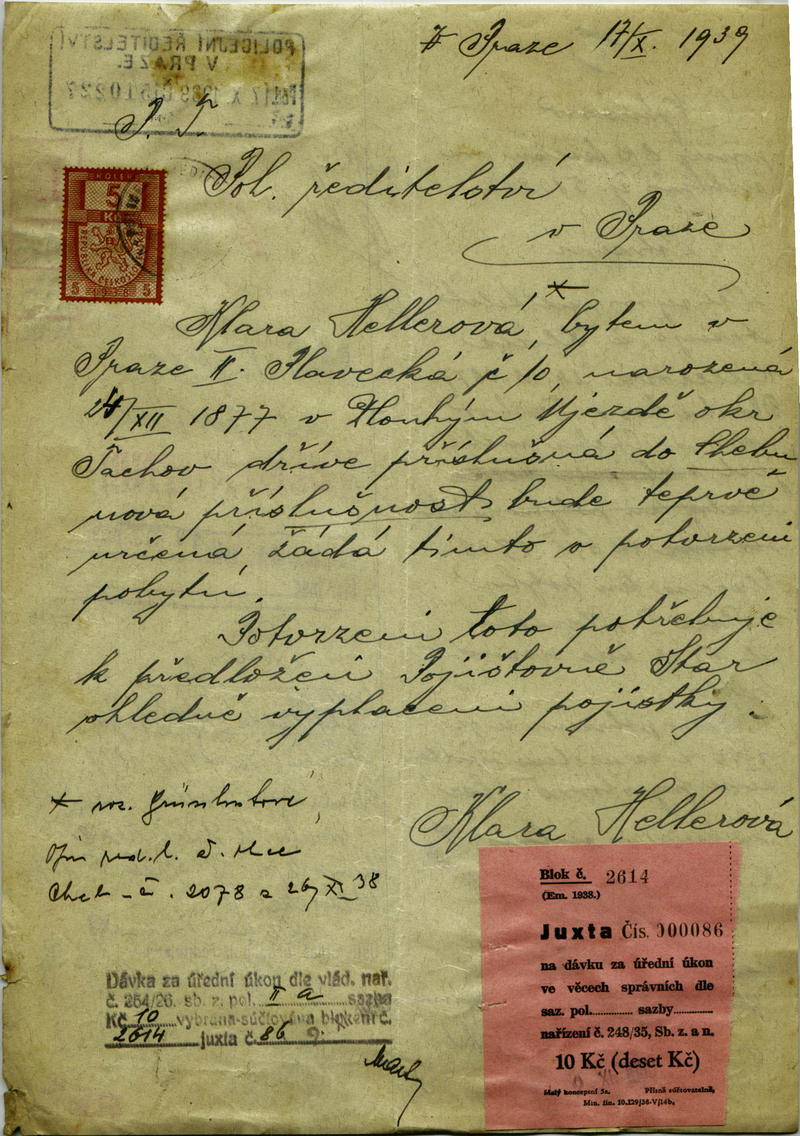 POLICEJNÍ ŘEDITELSTVÍ
V PRAZE.
17 X 1939
V Praze 17/X. 1939
P. T.
Pol. ředitelství
v Praze
KOLEK
5
Kč
REPUBLIKA ČESKOSLOVENSKÁ
5 5
Klara Hellerová, × bytem v
Praze II. Plavecká č 10, narozená
24/XII 1877 v Dlouhým Ujezdě okr
Tachov dříve příslušná do Chebu
nová příslušnost bude teprvé
určená, žádá tímto o potvrzení
pobytu.
Potvrzení toto potřebuje
k předložení Pojištovně Star
ohledně vyplacení pojistky.
Klara Hellerová
× roz.
Cheb - č. 2078 z 26/XI 38
Dávka za úřední úkon dle vlád. nař.
č. 254/26. sb. z. pol. II a sazba
Kč 10 vybrána-súčtována blokem č.
2614 juxta č. 86
Blok č. 2614
(Em. 1938.)
Juxta Čís. 000086
na dávku za úřední úkon
ve věcech správních dle
saz. pol. ............ sazby............
nařízení č. 248/35, Sb. z. a n.
10 Kč (deset Kč)
Přísně súčtovatelné.
Min. fin. 10.129/38-V/14b.